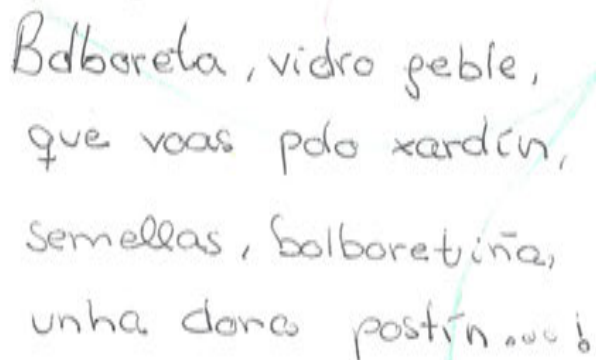 Bolboreta, vidro feble,
que voas polo xardín,
semellas, bolboretiña,
unha dona postín...!